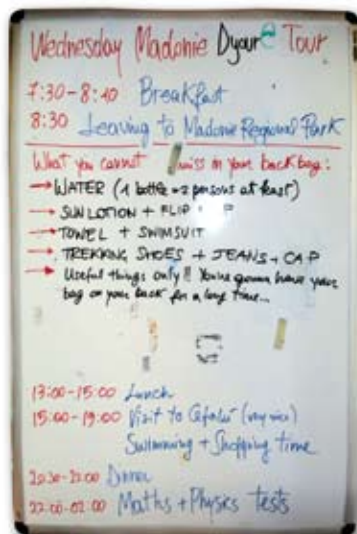 Wednesday Madonie Dyoure Tour
7:30-8:40 Breakfast
8:30 Leaving to Madonie Regional Park
What you cannot miss in your back bag:
→ WATER (1 bottle 2 persons at least)
→ SUN LOTION + FLIP
→ TOWEL + SWIMSUIT
→ TREKKING SHOES + JEANS + CAP
→ Useful things only!! You're gonna have your
bag on your back for a long time...
13:00-15:00 Lunch
15:00-19:00 Visit to Cefalù (very nice)
Swimming + Shopping time
20:30-22:00 Dinner
22:00-02:00 Maths + Physics tests